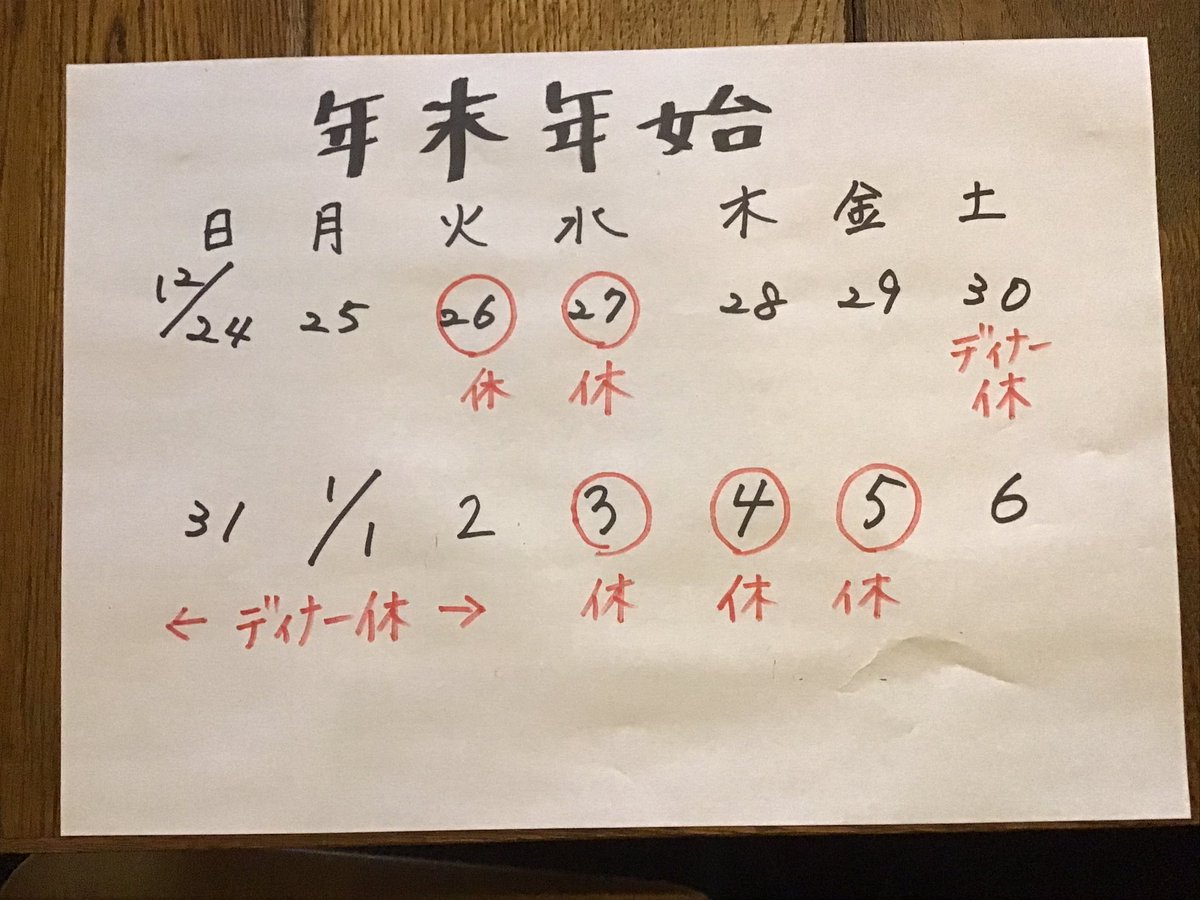 年末年始
日 月 火 水 木 金 土
12/24 25 26 27 28 29 30
休 休 ディナー休
31 1/1 2 3 4 5 6
← ディナー休 → 休 休 休